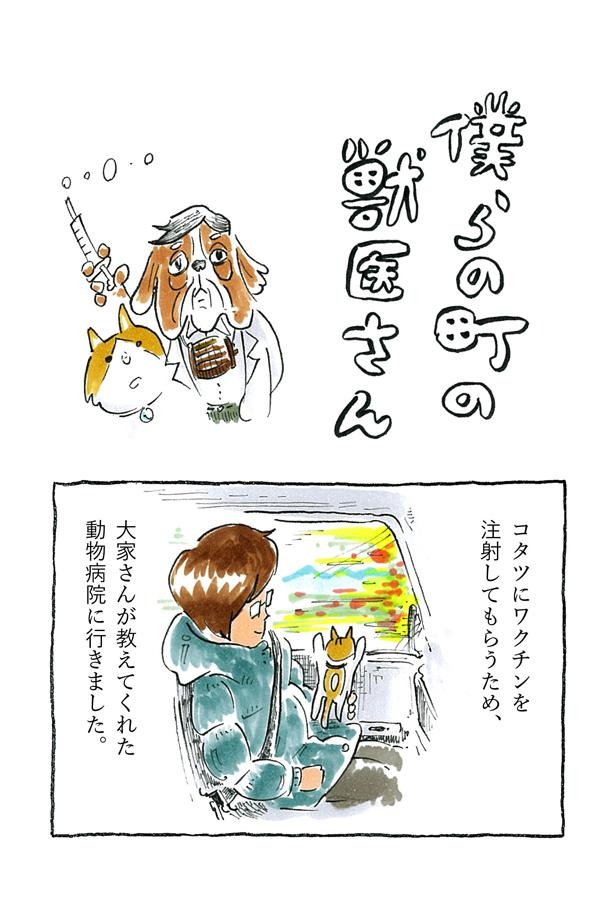 僕らの町の
獣医さん
コタツにワクチンを
注射してもらうため、
大家さんが教えてくれた
動物病院に行きました。